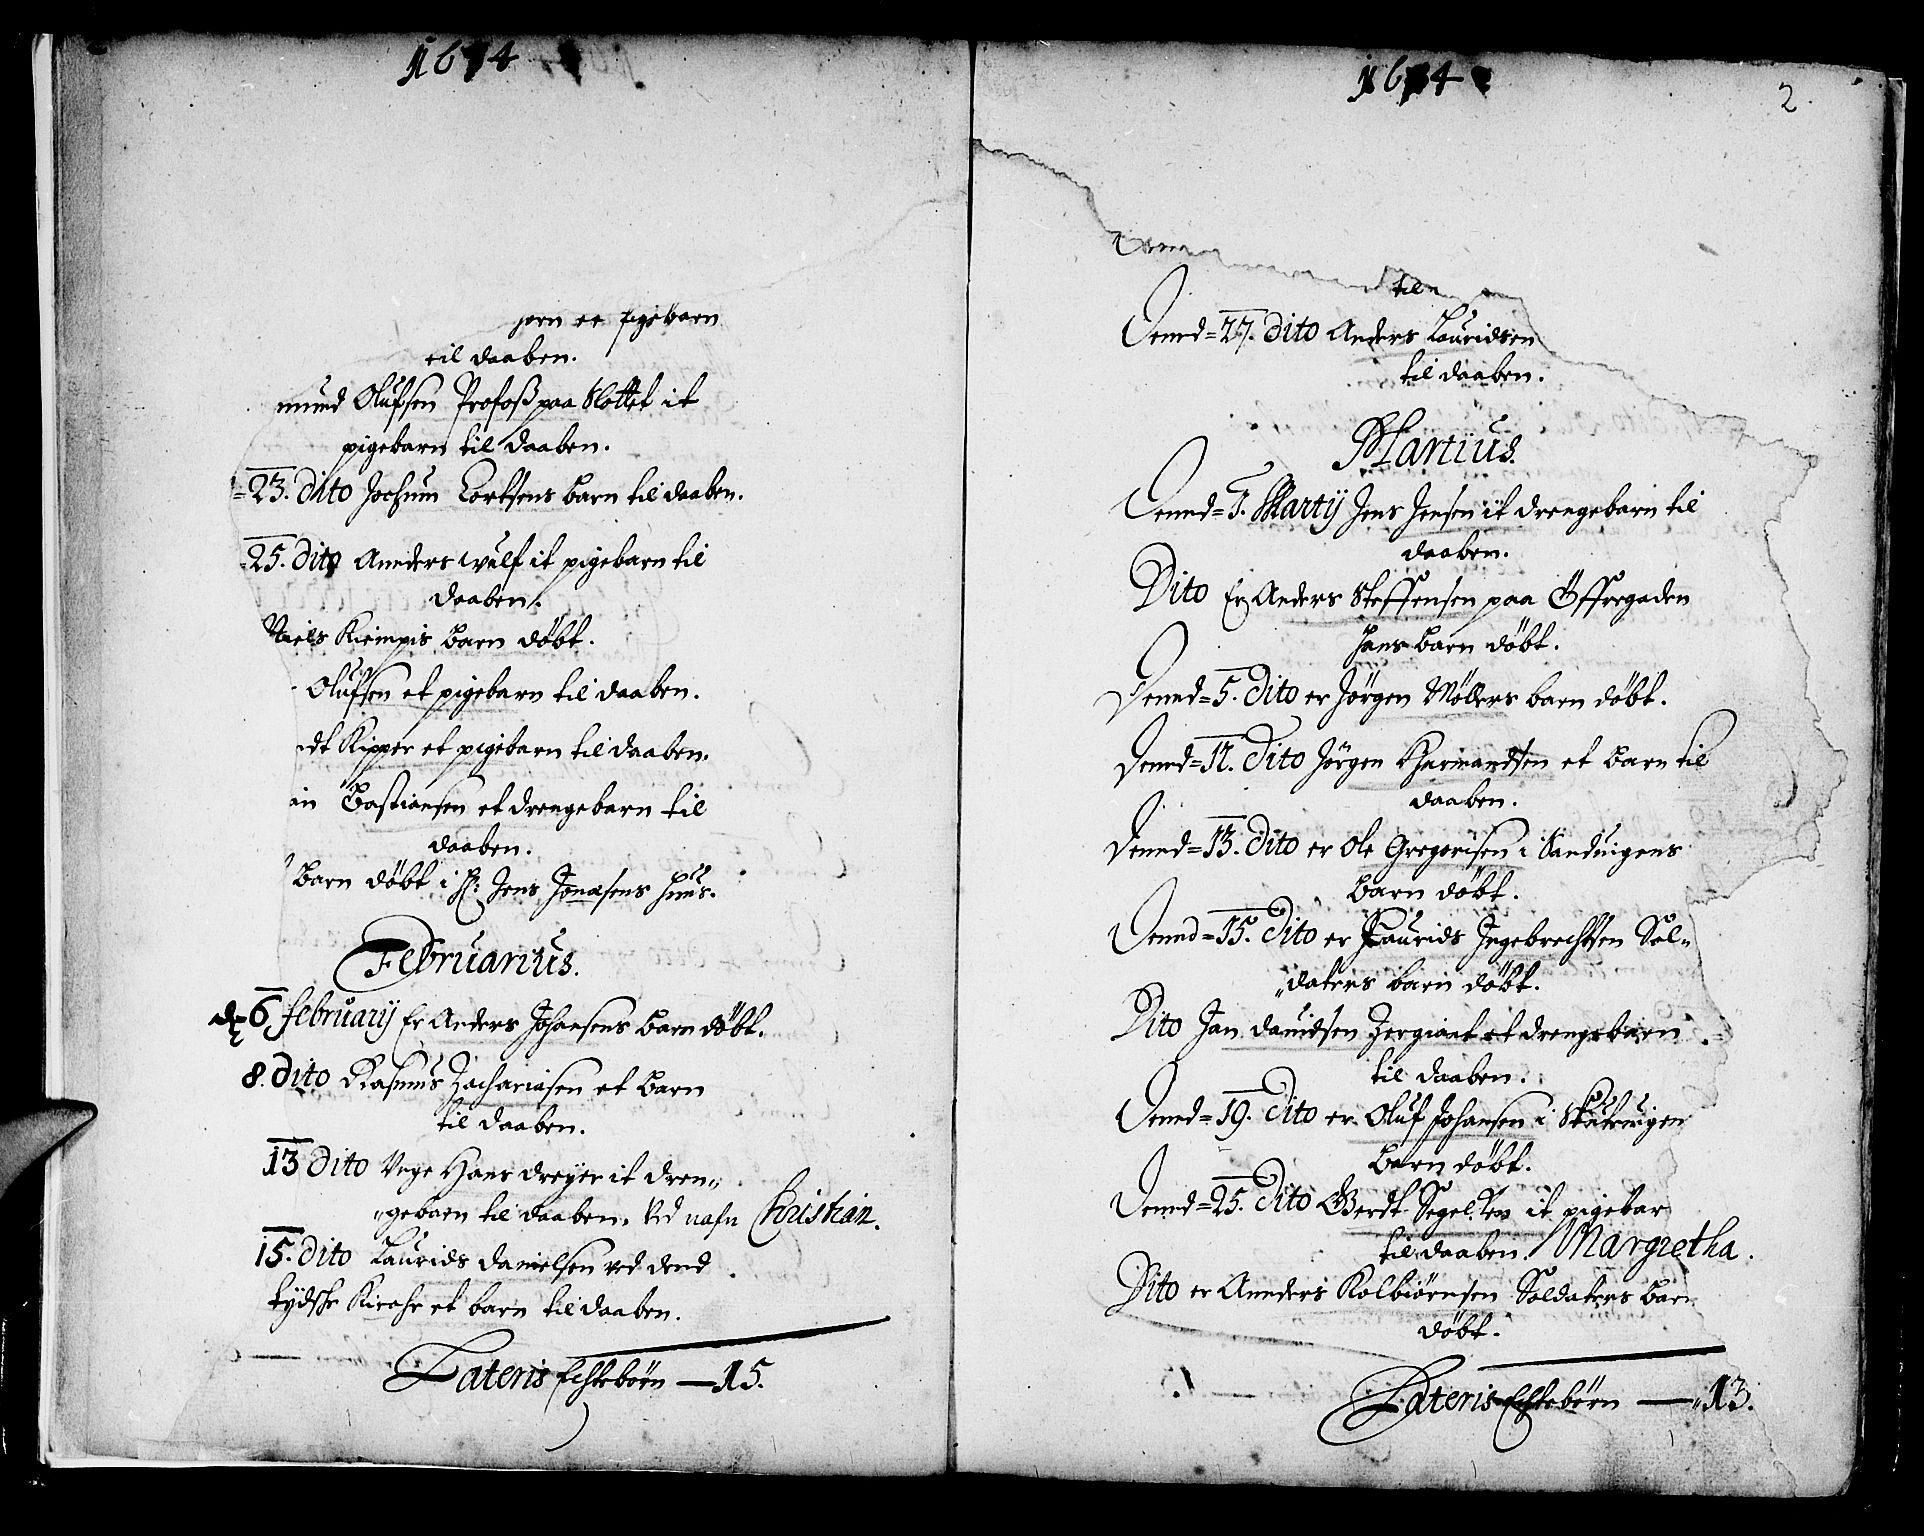 1674
jørn et pigebarn
til daaben.
mund Olufsen Profoß paa Slottet it
pigebarn til daaben.
=23. dito Jochum Cortsens barn til daaben.
=25. dito Annders Wulf it pigebarn til
daaben.
Niels Kiempis barn døbt.
Olufsen et pigebarn til daaben.
dt Kipper et pigebarn til daaben.
in Bastiansen et drengebarn til
daaben.
barn døbt i H: Jens Jonæsens huus.
Februarius.
d= 6 february Er Anders Johansens barn døbt.
8. dito Rasmus Zachariasen et barn
til daaben.
13 dito Hans dreyer it dren„
„gebarn til daaben. Ved nafn Christian.
15. dito Laurids Danielsen ved dend
tydsche Kirche et barn til daaben.
Lateris Echtebörn — 15.
1674
2.
til
Dennd=27. dito Anders Lauridsen
til daaben.
Martius.
Dennd=1. Martij Jens Jensen it drengebarn til
daaben.
Dito Er Anders Steffensen paa Öffregaden
hans barn døbt.
Dennd=5. dito er Jørgen Møllers barn døbt.
Dennd=12. dito Jørgen Hermandsen et barn til
daaben.
Dennd=13. dito er Ole Gregorisen i Sanduigens
barn døbt.
Dennd=15. dito er Laurids Ingebrechtsen Sol„
„daters barn døbt.
Dito Jan Dauidsen Zergiant et drengebarn
til daaben.
Dennd=19. dito er Oluf Johansen i Skuteuigen
barn døbt.
Dennd=25. dito Gerdt Segelcken it pigebar
til daaben. Margretha.
Dito er Annders Kolbiörnsen Soldaters bar
døbt.
Lateris Echtebörn — „13.